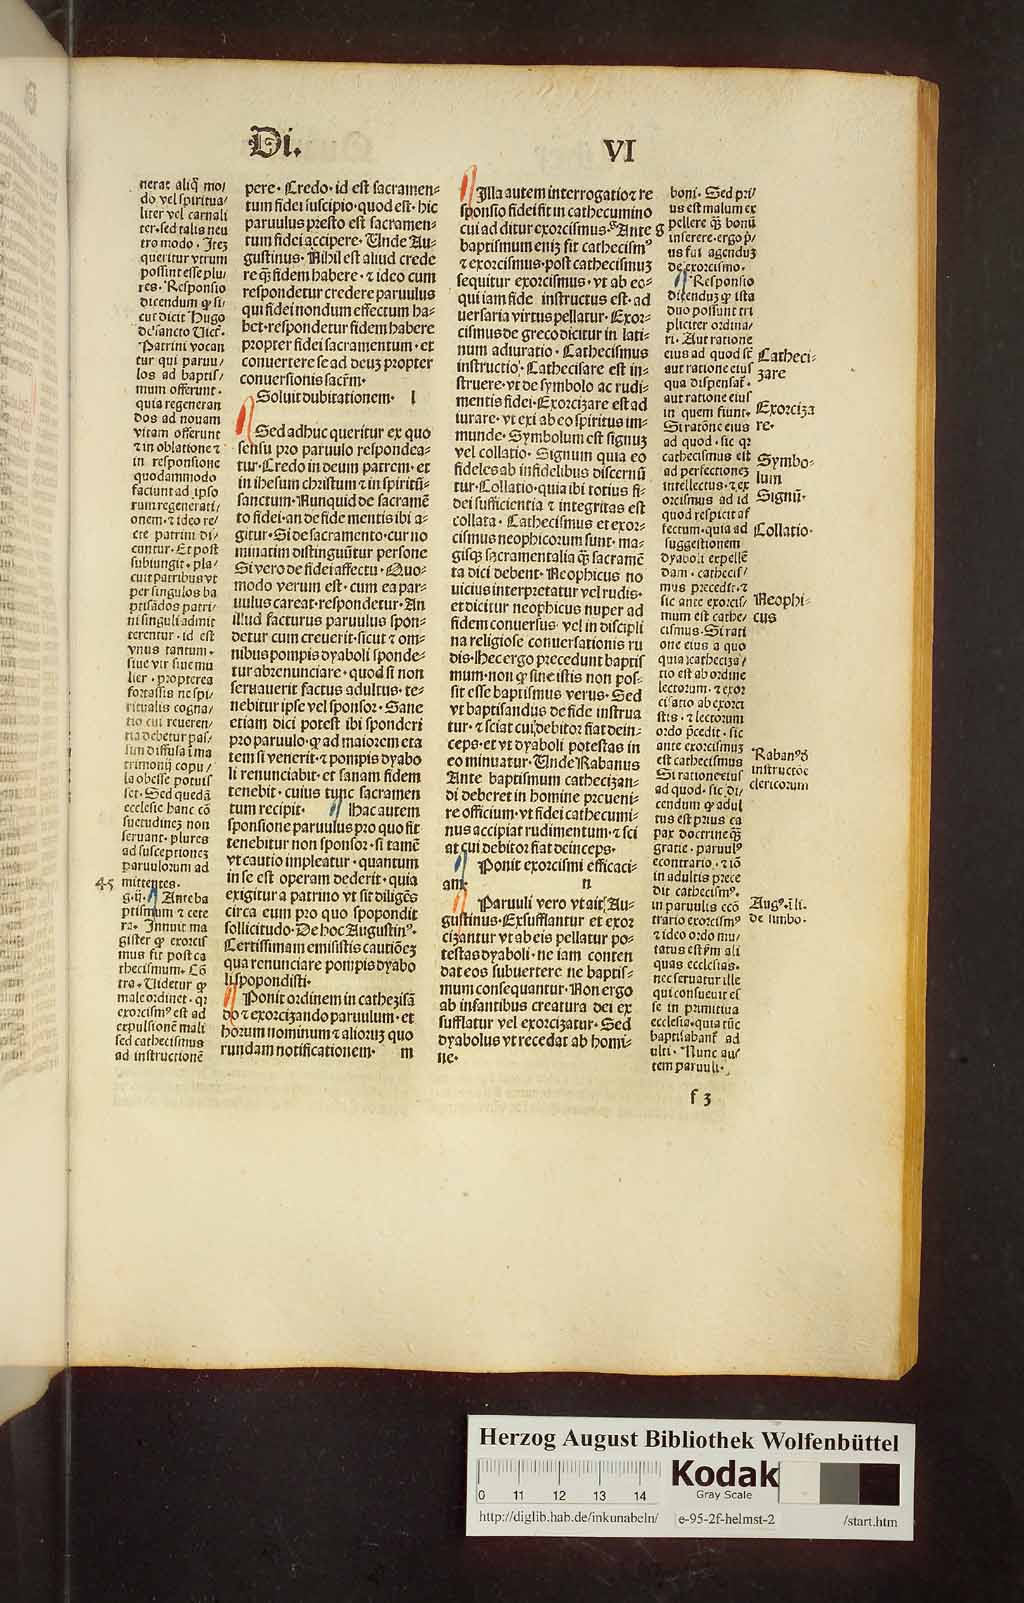 Di.
VI
nerat aliq̄ mo/
do vel spiritua/
liter vel carnali
ter·sed talis neu
tro modo. Iteȝ
queritur vtrum
possint esse plu/
res. Responsio
dicendum ꝙ si/
cut dicit Hugo
de sancto Uict̄.
Patrini vocan
tur qui paruu/
los ad baptis/
mum offerunt·
quia regeneran
dos ad nouam
vitam offerunt
⁊ in oblatione ⁊
in responsione
quodammodo
faciunt ad ipso
rum regenerati/
onem·⁊ ideo re/
cte patrini di/
cuntur. Et post
subiungit·pla/
cuit patribus vt
per singulos ba
ptisados patri/
ni singuli admit
terentur·id est
vnus tantum·
siue vir siue mu
lier·propterea
fortassis ne spi/
ritualis cogna/
tio cui reueren/
tia debetur pas/
sim diffusa ī ma
trimonij copu/
la obesse potuis
set. Sed quedā
ecclesie hanc cō
suetudineȝ non
seruant·plures
ad susceptioneȝ
paruulorum ad
45 mittentes.
g.ij. Ante ba
ptismum ⁊ cete
ra. Innuit ma
gister ꝙ exorcis
mus fit post ca
thecismum. Cō
tra. Uidetur ꝙ
male ordinet·qꝛ
exorcismꝰ est ad
expulsionē mali
sed cathecismus
ad instructionē
pere. Credo·id est sacramen=
tum fidei suscipio·quod est·hic
paruulus presto est sacramen=
tum fidei accipere. Unde Au=
gustinus. Nihil est aliud crede
re q̄ȝ fidem habere·⁊ ideo cum
respondetur credere paruulus
qui fidei nondum effectum ha=
bet·respondetur fidem habere
propter fidei sacramentum·et
conuertere se ad deuȝ propter
conuersionis sacr̄m.
Soluit dubitationem. l
Sed adhuc queritur ex quo
sensu pro paruulo respondea=
tur. Credo in deum patrem·et
in ihesum christum ⁊ in spiritū=
sanctum. Nunquid de sacramē
to fidei·an de fide mentis ibi a=
gitur. Si de sacramento·cur no
minatim distinguūtur persone
Si vero de fidei affectu. Quo=
modo verum est·cum ea par=
uulus careat·respondetur. An
illud facturus paruulus spon=
detur cum creuerit·sicut ⁊ om=
nibus pompis dyaboli sponde=
tur abrenunciare·quod si non
seruauerit factus adultus·te=
nebitur ipse vel sponsor. Sane
etiam dici potest ibi sponderi
pro paruulo·ꝙ ad maiorem eta
tem si venerit·⁊ pompis dyabo
li renunciabit·et sanam fidem
tenebit·cuius tunc sacramen
tum recipit. Hac autem
sponsione paruulus pro quo fit
tenebitur non sponsor·si tamē
vt cautio impleatur·quantum
in se est operam dederit·quia
exigitur a patrino vt sit diligēs
circa eum pro quo spopondit
sollicitudo. De hoc Augustinꝰ.
Certissimam emisistis cautiōeȝ
qua renunciare pompis dyabo
li spopondisti.
Ponit ordinem in cathezisā
do ⁊ exorcizando paruulum·et
horum nominum ⁊ aliorȝ quo
rundam notificationem. m
Illa autem interrogatio ⁊ re
sponsio fidei fit in cathecumino
cui additur exorcismus. Ante g
baptismum eniȝ fit cathecismꝰ
⁊ exorcismus·post cathecismuȝ
sequitur exorcismus·vt ab eo=
qui iam fide instructus est·ad
uersaria virtus pellatur. Exor=
cismus de greco dicitur in lati=
num adiuratio. Cathecismus
instructio. Cathecisare est in=
struere·vt de symbolo ac rudi=
mentis fidei. Exorcizare est ad
iurare·vt exi ab eo spiritus im=
munde. Symbolum est signuȝ
vel collatio. Signum quia eo
fideles ab infidelibus discernū
tur. Collatio·quia ibi totius fi=
dei sufficientia ⁊ integritas est
collata. Cathecismus et exor=
cismus neophicorum sunt·ma=
gisqȝ sacramentalia q̄ȝ sacramē
ta dici debent. Neophicus no
uicius interpretatur vel rudis.
et dicitur neophicus nuper ad
fidem conuersus·vel in discipli
na religiose conuersationis ru
dis. Hec ergo precedunt baptis
mum·non ꝙ sine istis non pos=
sit esse baptismus verus. Sed
vt baptisandus de fide instrua
tur·⁊ sciat cui debitor fiat dein=
ceps·et vt dyaboli potestas in
eo minuatur. Unde Rabanus
Ante baptismum cathecizan=
di deberet in homine preueni=
re officium·vt fidei cathecumi=
nus accipiat rudimentum·⁊ sci
at cui debitor fiat deinceps.
Ponit exorcismi efficaci=
am. n
Paruuli vero vt ait Au=
gustinus. Exsufflantur et exor
cizantur vt ab eis pellatur po=
testas dyaboli·ne iam conten
dat eos subuertere ne baptis=
mum consequantur. Non ergo
ab infantibus creatura dei ex
sufflatur vel exorcizatur. Sed
dyabolus vt recedat ab homi=
ne.
boni. Sed pri/
us est malum ex
pellere q̄ȝ bonū
inserere·ergo p̄/
us fui agenduȝ
de exorcismo.
Responsio
dicenduȝ ꝙ ista
duo possunt tri
pliciter ordina/
ri. Aut ratione
eius ad quod sūt
aut ratione eius
qua dispensat̄.
aut ratione eius
in quem fiunt.
Si ratōne eius
ad quod·sic qꝛ
cathecismus est
ad perfectioneȝ
intellectus·⁊ ex
orcismus ad id
quod respicit af
fectum·quia ad
suggestionem
dyaboli expellē
dam·cathecis/
mus precedit·⁊
sic ante exorcis/
mum est cathe/
cismus. Si rati
one eius a quo
quia catheciza/
tio est ab ordine
lectorum·⁊ exor
cisatio ab exorci
stis·⁊ lectorum
ordo p̄cedit·sic
ante exorcismuȝ
est cathecismus
Si ratione eius
ad quod·sic di/
cendum ꝙ adul
tus est prius ca
pax doctrine q̄ȝ
gratie·paruulꝰ
econtrario·⁊ iō
in adultis prece
dit cathecismꝰ.
in paruulis ecō
trario exorcismꝰ
⁊ ideo ordo mu/
tatus est fm̄ ali
quas ecclesias.
nec seruatur ille
qui consueuit es
se in primitiua
ecclesia·quia tūc
baptisabant̄ ad
ulti. Nunc au/
tem paruuli.
Catheci=
zare
Exorciza
re.
Symbo=
lum
Signū.
Collatio.
Neophi=
cus
Rabanꝰ ð
instructōe
clericorum
Augꝰ. ī li.
de limbo.
f 3
Herzog August Bibliothek Wolfenbüttel
0 11 12 13 14
Kodak
Gray Scale
http://diglib.hab.de/inkunabeln/ e-95-2f-helmst-2 /start.htm